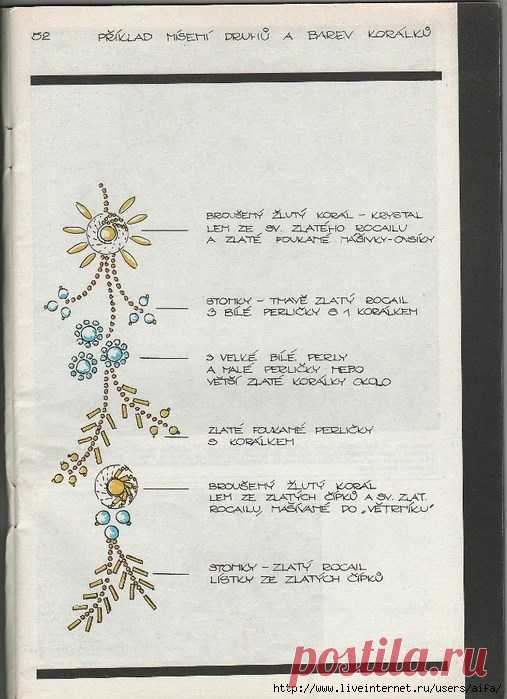 52 PŘÍKLAD MÍŠEMÍ DRUHŮ A BAREV KORÁLKŮ
BROUŠEMÝ ŽLUTÝ KORÁL – KRYSTAL
LEM ZE SV. ZLATÉHO ROCAILU
A ZLATÉ FOUKAMÉ MAŠÍVKY-OVSÍKY
STOMKY – TMAVĚ ZLATÝ ROCAIL
3 BÍLÉ PERLIČKY S 1 KORÁLKEM
3 VELKÉ BÍLÉ PERLY
A MALÉ PERLIČKY MEBO
VĚTŠÍ ZLATÉ KORÁLKY OKOLO
ZLATÉ FOUKAMÉ PERLIČKY
S KORÁLKEM
BROUŠEMÝ ŽLUTÝ KORÁL
LEM ZE ZLATÝCH ČÍPKŮ A SV. ZLAT.
ROCAILU, MAŠÍVAMÉ DO „VĚTRMÍKU"
STOMKY – ZLATÝ ROCAIL
LÍSTKY ZE ZLATÝCH ČÍPKŮ
postila.ru
http://www.liveinternet.ru/users/aifa/